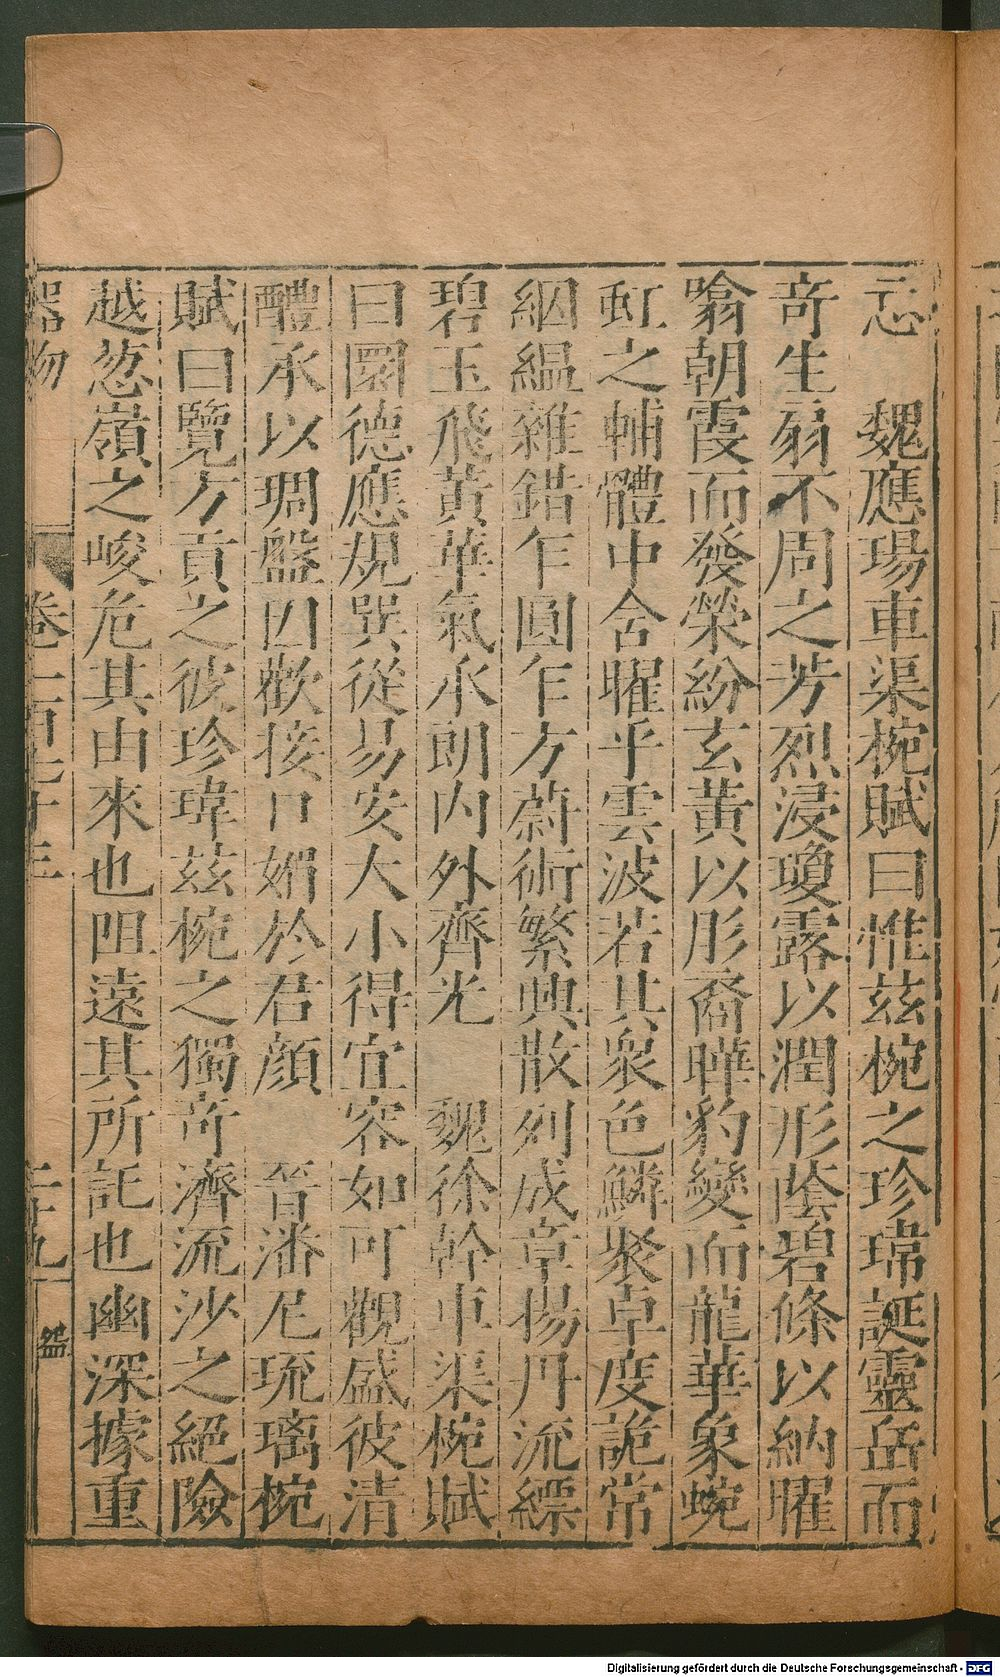 忘　魏應瑒車渠椀賦曰惟茲椀之珍瑋誕靈岳而
奇生扇不周之芳烈浸瓊露以潤形蔭碧條以納曜
噏朝霞而發榮紛玄黃以肜裔曄豹變而龍華象蜿
虹之輔體中含曜乎雲波若其衆色鱗聚卓度詭常
絪縕雜錯乍圓乍方蔚術繁興散列成章揚丹流縹
碧玉飛黃華氣承朗內外齊光　魏徐幹車渠椀賦
曰圜德應規巽從易安大小得宜容如可觀盛彼清
醴承以琱盤因歡接口媚於君顏　晉潘尼琉璃椀
賦曰覽方貢之彼珍瑋茲椀之獨奇濟流沙之絕險
越葱嶺之峻危其由來也阻遠其所託也幽深據重
器物　卷一百七十三　二十九
Digitalisierung gefördert durch die Deutsche Forschungsgemeinschaft - DFG